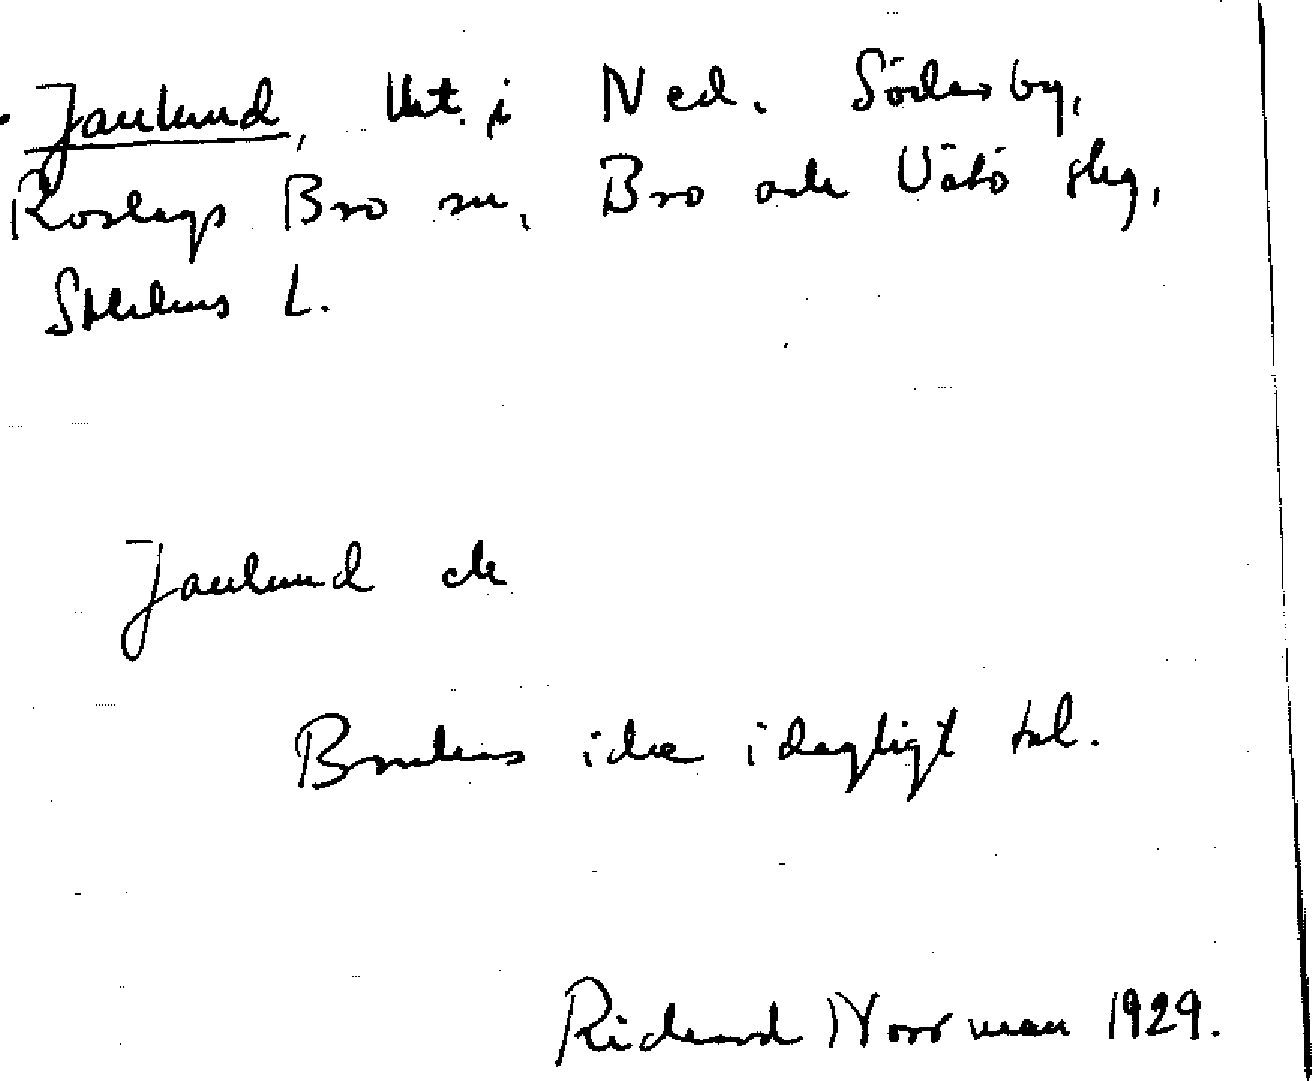 Janlund, lht. i Ned. Söderby,
Roslags Bro sn, Bro och Vätö skg,
Stockholms L.
Janlund
Brukas icke i dagligt tal.
Richard Norrman 1929.